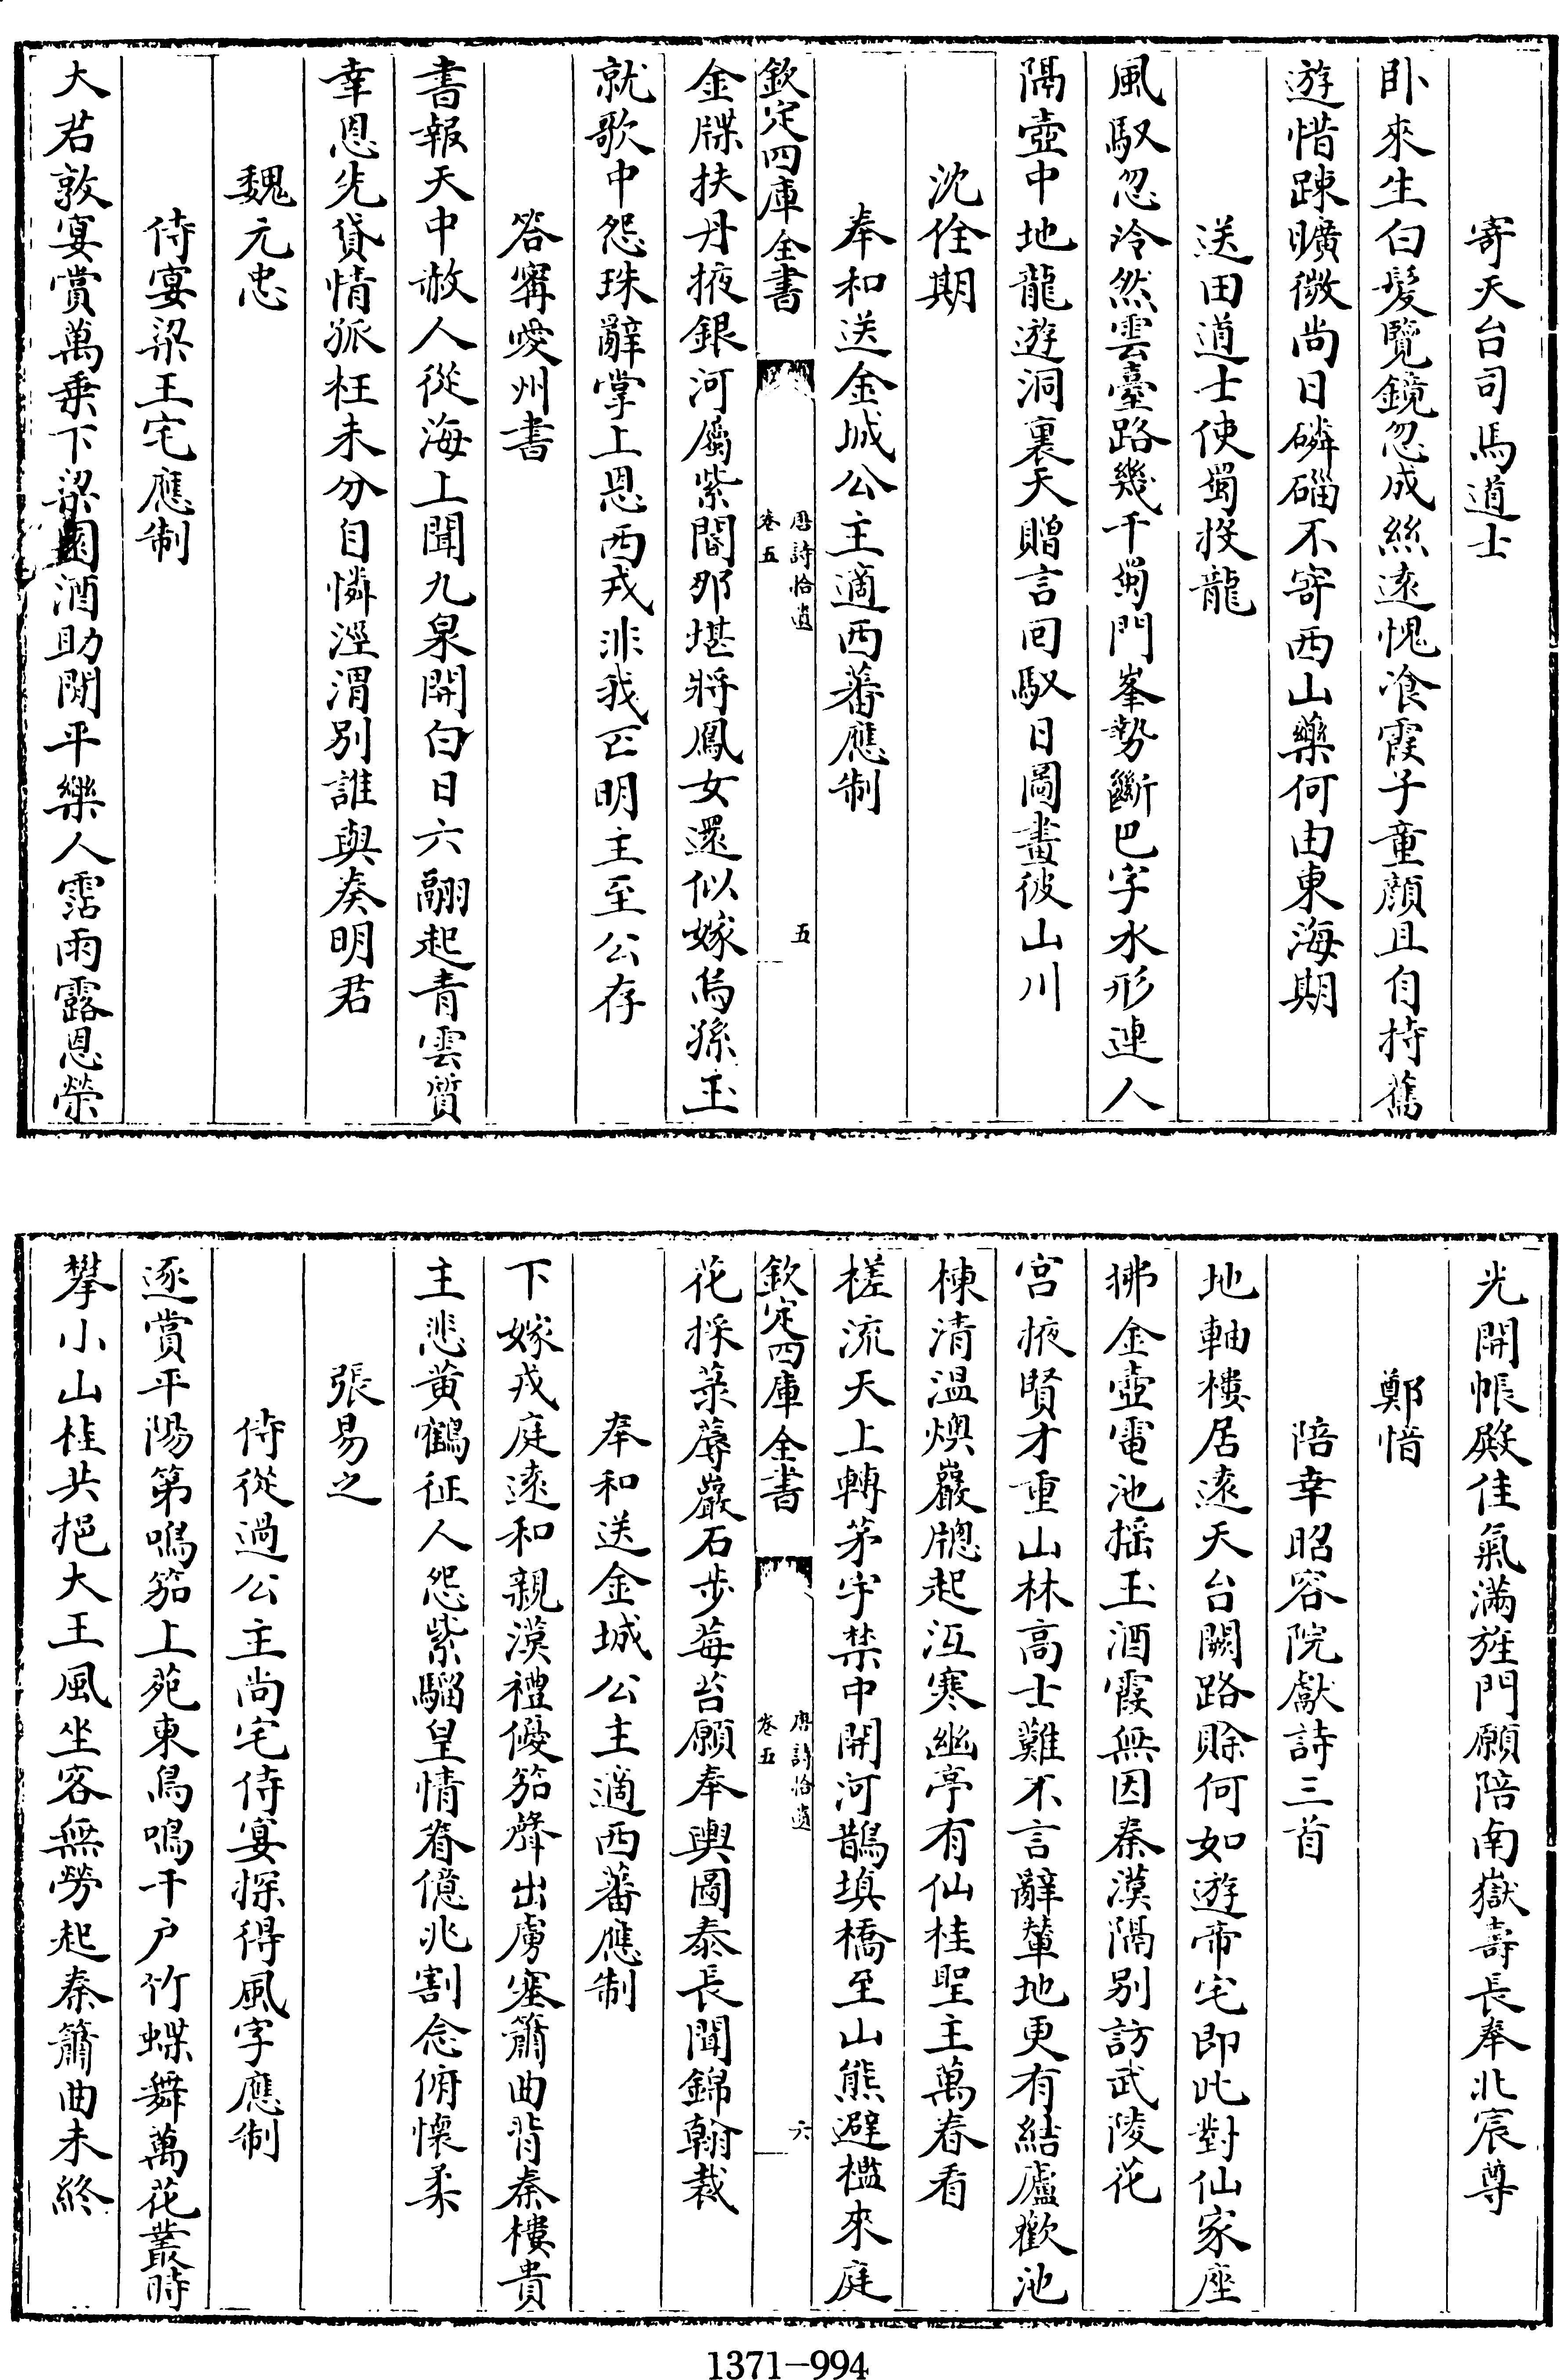 寄天台司馬道士
卧來生白髮覽鏡忽成絲逺愧飡霞子童顔且自持舊
遊惜踈曠微尚日磷磂不寄西山藥何由東海期
送田道士使蜀投龍
風馭忽泠然雲臺路幾千蜀門峯勢斷巴字水形連人
隔壺中地龍遊洞裏天贈言回馭日圖畫彼山川
沈佺期
奉和送金城公主適西蕃應制
欽定四庫全書
唐詩拾遺
卷五
五
金牓扶丹掖銀河屬紫閽那堪將鳳女還似嫁烏孫玉
就歌中怨珠辭掌上恩西戎非我匹明主至公存
答寗愛州書
書報天中赦人從海上聞九泉開白日六翮起青雲質
幸恩先貸情孤枉未分自憐涇渭別誰與奏明君
魏元忠
侍宴梁王宅應制
大君敦宴賞萬乗下梁園酒助閒平樂人霑雨露恩榮
光開帳殿佳氣滿旌門願陪南嶽壽長奉北宸尊
鄭愔
陪幸昭容院獻詩三首
地軸樓居逺天台闕路賖何如遊帝宅即此對仙家座
拂金壺電池揺玉酒霞無因秦漢隔别訪武陵花
宫掖賢才重山林高士難不言辭輦地更有結廬歡池
棟清温燠巖牕起沍寒幽亭有仙桂聖主萬春看
槎流天上轉茅宇禁中開河鵲填橋至山熊避檻來庭
欽定四庫全書
唐詩拾遺
卷五
六
花採菉蓐巖石步莓苔願奉輿圖泰長聞錦翰裁
奉和送金城公主適西蕃應制
下嫁戎庭逺和親漢禮優笳聲出虜塞簫曲背秦樓貴
主悲黄鶴征人怨紫騮皇情眷億兆割念俯懐柔
張易之
侍從過公主尚宅侍宴探得風字應制
逐賞平陽第鳴笳上苑東鳥鳴千户竹蝶舞萬花叢時
攀小山桂共挹大王風坐客無勞起秦簫曲未終
1371-994